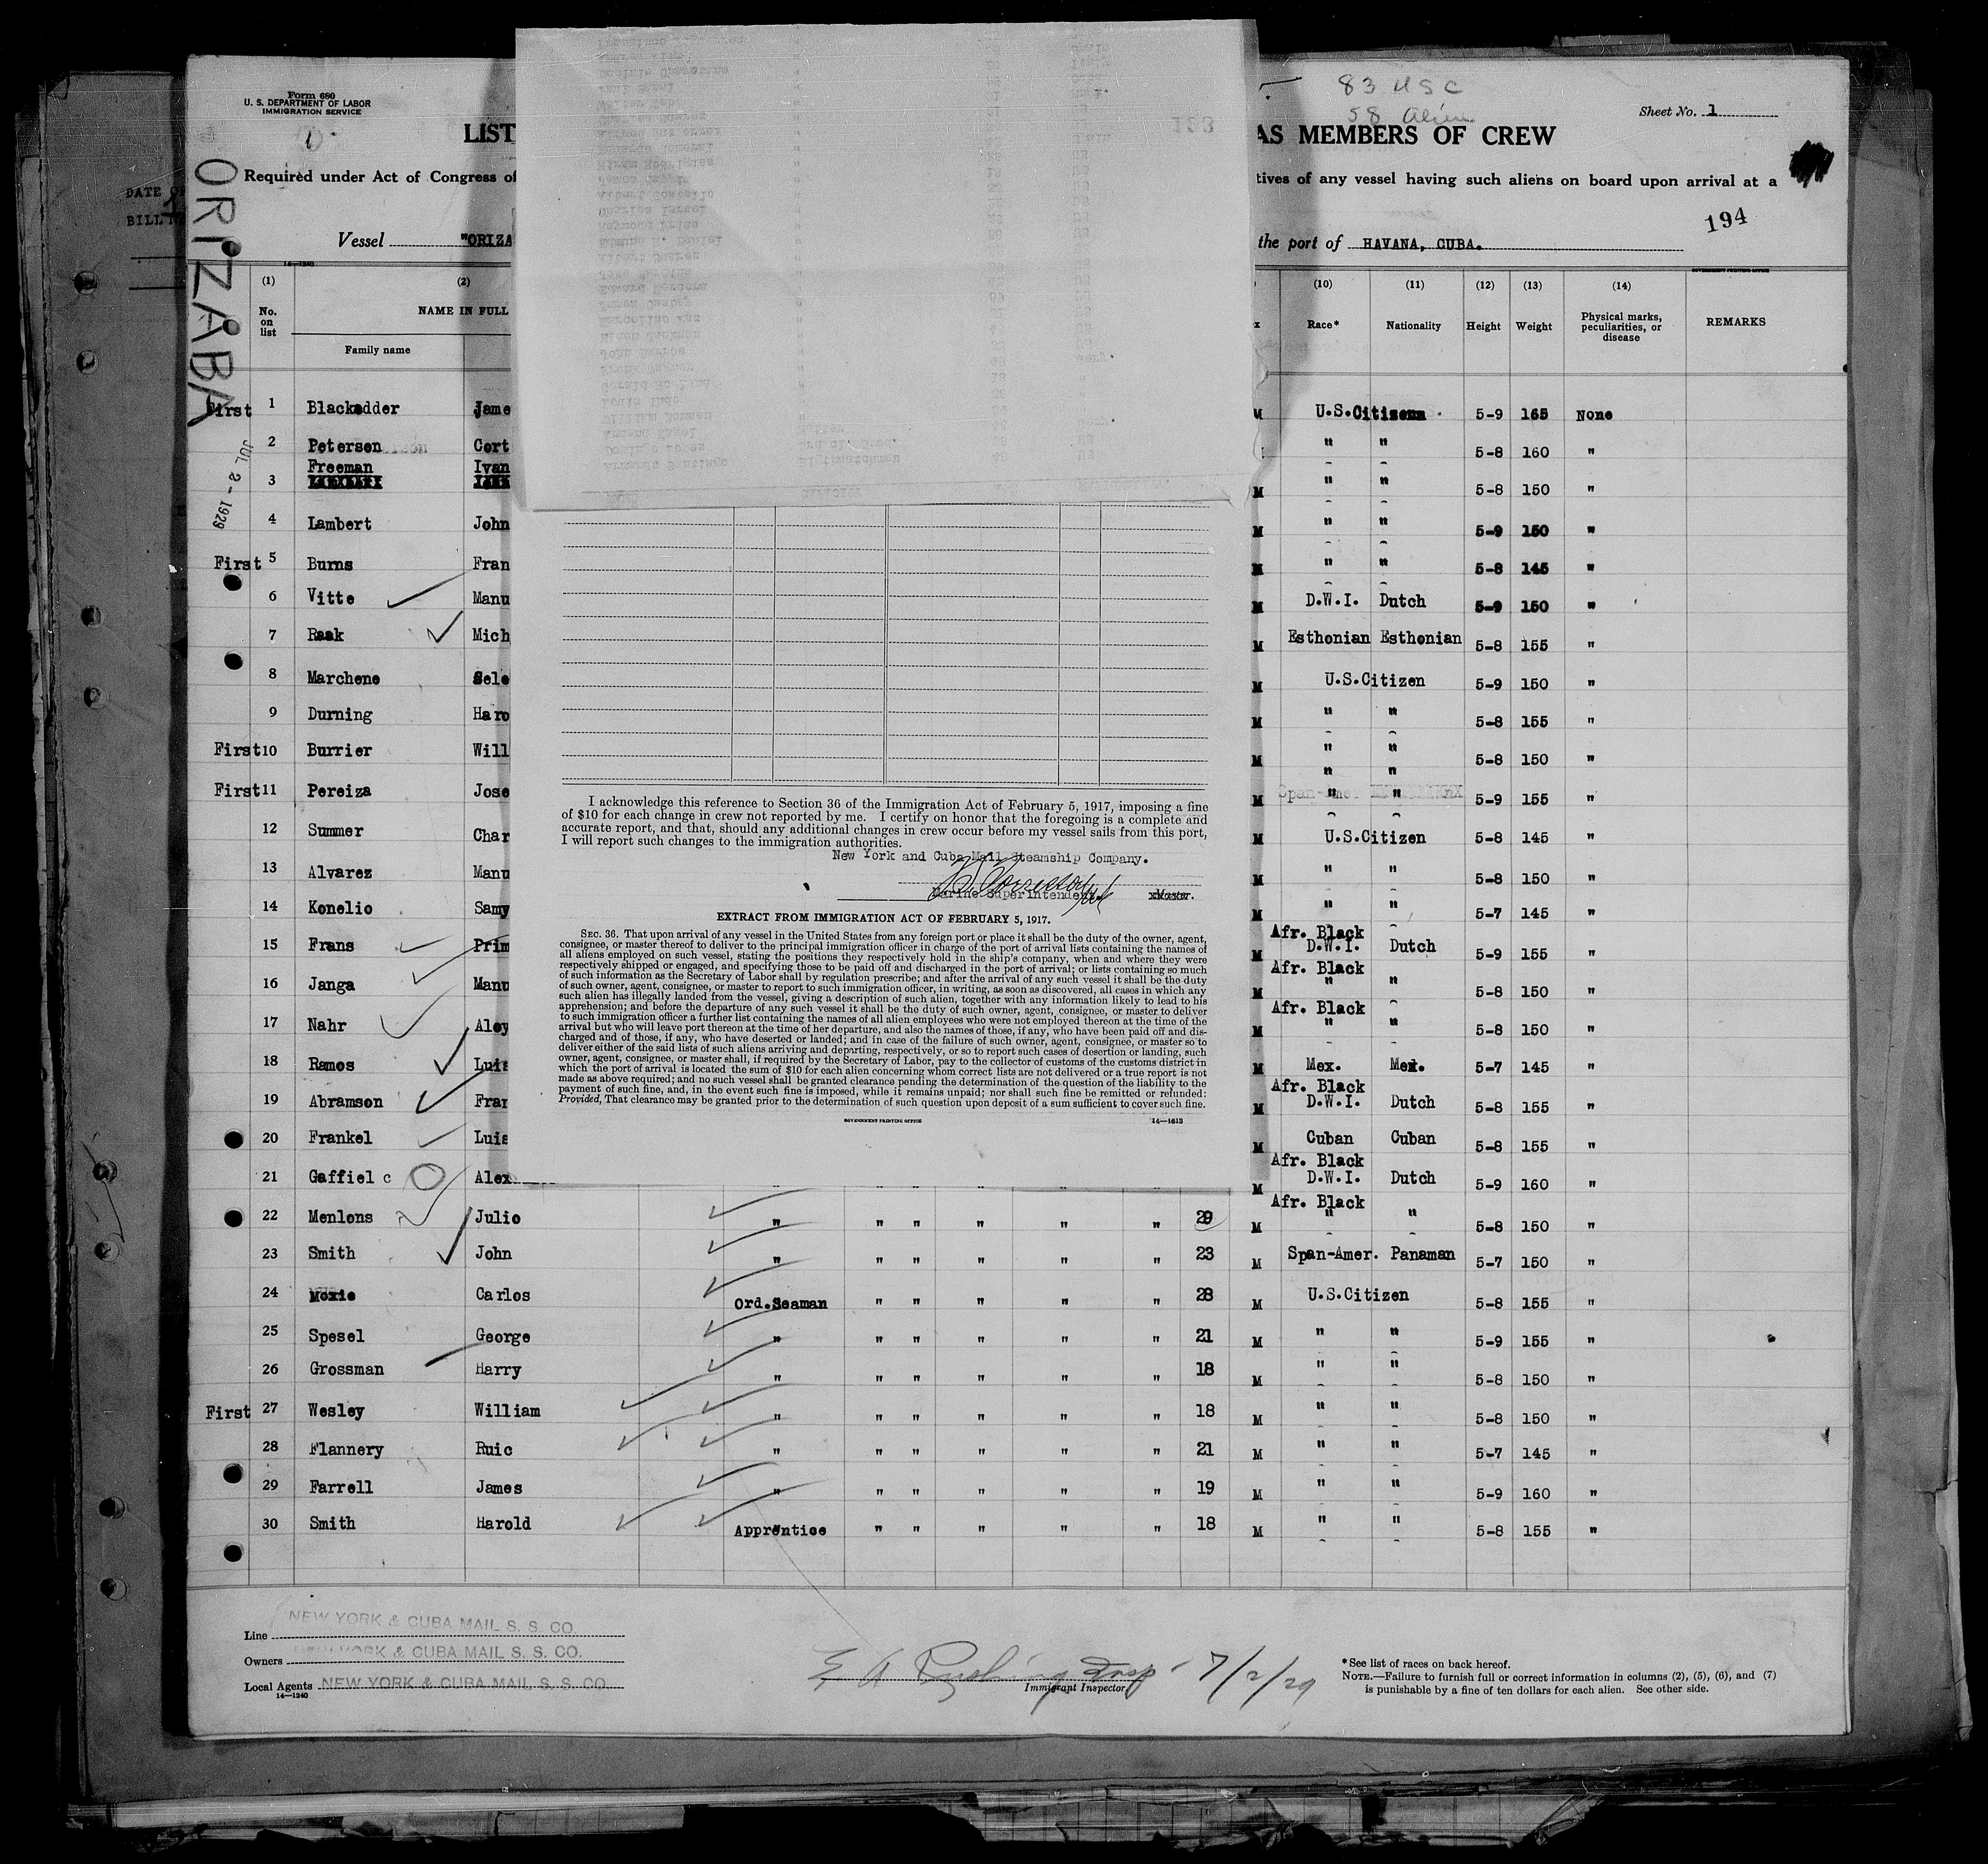 83 USC
58 Alien
Form 680
U. S. DEPARTMENT OF LABOR
IMMIGRATION SERVICE
Sheet No. 1
LIST AS MEMBERS OF CREW
Required under Act of Congress of tives of any vessel having such aliens on board upon arrival at a
194
Vessel "ORIZA the port of HAVANA, CUBA.
ORIZABA
JUL 2 - 1929
DATE
BILL
14—1240
GOVERNMENT PRINTING OFFICE
(1) (2) (10) (11) (12) (13) (14)
No. on list NAME IN FULL Race* Nationality Height Weight Physical marks, peculiarities, or disease REMARKS
Family name
First 1 Blackadder Jame M U.S.Citizens 5-9 165 None
2 Petersen Cort " " 5-8 160 "
Freeman Ivan
3 M " " 5-8 150 "
4 Lambert John M " " 5-9 150 "
First 5 Burns Fran M " " 5-8 145 "
6 Vitte Manu M D.W.I. Dutch 5-9 150 "
7 Raak Mich M Esthonian Esthonian 5-8 155 "
8 Marchene Sele M U.S.Citizen 5-9 150 "
9 Durning Haro M " " 5-8 155 "
First 10 Burrier Will M " " 5-8 150 "
" "
First 11 Pereiza Jose M Span-Ame. " " 5-9 155 "
12 Summer Char M U.S.Citizen 5-8 145 "
13 Alvarez Manu M " " 5-8 150 "
14 Konelio Samy M " " 5-7 145 "
Afr. Black
15 Frans Prim M D.W.I. Dutch 5-9 155 "
Afr. Black
16 Janga Manu M " " 5-8 150 "
Afr. Black
17 Nahr Aloy M " " 5-8 150 "
18 Ramos Luis M Mex. Mex. 5-7 145 "
Afr. Black
19 Abramson Fran M D.W.I. Dutch 5-8 155 "
20 Frankel Luis M Cuban Cuban 5-8 155 "
Afr. Black
21 Gaffiel c Alex M D.W.I. Dutch 5-9 160 "
Afr. Black
22 Menlons Julio " " " " " " 29 M " " 5-8 150 "
23 Smith John " " " " " " 23 M Span-Amer. Panaman 5-7 150 "
24 Moxie Carlos Ord.Seaman " " " " " 28 M U.S.Citizen 5-8 155 "
25 Spesel George " " " " " " 21 M " " 5-9 155 "
26 Grossman Harry " " " " " " 18 M " " 5-8 150 "
First 27 Wesley William " " " " " " 18 M " " 5-8 150 "
28 Flannery Ruic " " " " " " 21 M " " 5-7 145 "
29 Farrell James " " " " " " 19 M " " 5-9 160 "
30 Smith Harold Apprentice " " " " " 18 M " " 5-8 155 "
I acknowledge this reference to Section 36 of the Immigration Act of February 5, 1917, imposing a fine
of $10 for each change in crew not reported by me. I certify on honor that the foregoing is a complete and
accurate report, and that, should any additional changes in crew occur before my vessel sails from this port,
I will report such changes to the immigration authorities.
New York and Cuba Mail Steamship Company.
Marine Superintendent. Master.
EXTRACT FROM IMMIGRATION ACT OF FEBRUARY 5, 1917.
SEC. 36. That upon arrival of any vessel in the United States from any foreign port or place it shall be the duty of the owner, agent,
consignee, or master thereof to deliver to the principal immigration officer in charge of the port of arrival lists containing the names of
all aliens employed on such vessel, stating the positions they respectively hold in the ship's company, when and where they were
respectively shipped or engaged, and specifying those to be paid off and discharged in the port of arrival; or lists containing so much
of such information as the Secretary of Labor shall by regulation prescribe; and after the arrival of any such vessel it shall be the duty
of such owner, agent, consignee, or master to report to such immigration officer, in writing, as soon as discovered, all cases in which any
such alien has illegally landed from the vessel, giving a description of such alien, together with any information likely to lead to his
apprehension; and before the departure of any such vessel it shall be the duty of such owner, agent, consignee, or master to deliver
to such immigration officer a further list containing the names of all alien employees who were not employed thereon at the time of the
arrival but who will leave port thereon at the time of her departure, and also the names of those, if any, who have been paid off and dis-
charged and of those, if any, who have deserted or landed; and in case of the failure of such owner, agent, consignee, or master so to
deliver either of the said lists of such aliens arriving and departing, respectively, or so to report such cases of desertion or landing, such
owner, agent, consignee, or master shall, if required by the Secretary of Labor, pay to the collector of customs of the customs district in
which the port of arrival is located the sum of $10 for each alien concerning whom correct lists are not delivered or a true report is not
made as above required; and no such vessel shall be granted clearance pending the determination of the question of the liability to the
payment of such fine, and, in the event such fine is imposed, while it remains unpaid; nor shall such fine be remitted or refunded:
Provided, That clearance may be granted prior to the determination of such question upon deposit of a sum sufficient to cover such fine.
GOVERNMENT PRINTING OFFICE 14—1613
Line NEW YORK & CUBA MAIL S. S. CO.
Owners NEW YORK & CUBA MAIL S. S. CO.
Local Agents NEW YORK & CUBA MAIL S. S. CO.
14—1240
E A Rushing Insp - 7/2/29
Immigrant Inspector
*See list of races on back hereof.
NOTE.—Failure to furnish full or correct information in columns (2), (5), (6), and (7)
is punishable by a fine of ten dollars for each alien. See other side.